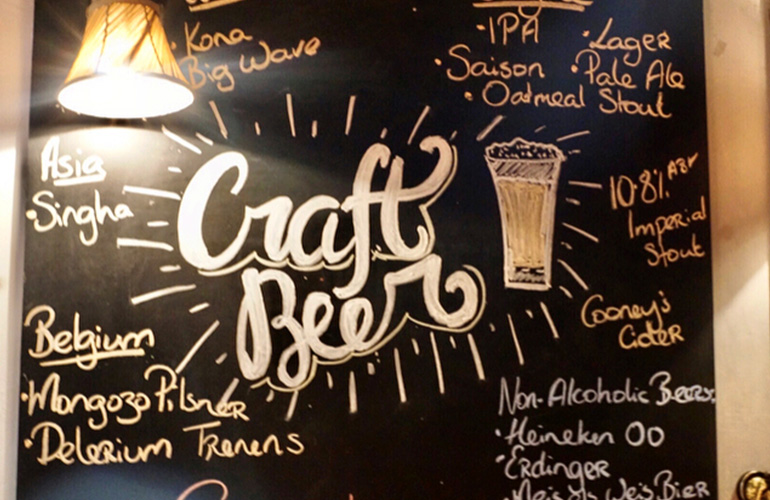 ·Kona
Big Wave
·IPA
·Lager
·Saison
·Pale Ale
·Oatmeal Stout
Asia
·Singha
Craft
Beer
10.8% ABV
Imperial
Stout
Cooney's
Cider
Belgium
·Mongozo Pilsner
·Delerium Tremens
Non-Alcoholic Beers
·Heineken 00
·Erdinger